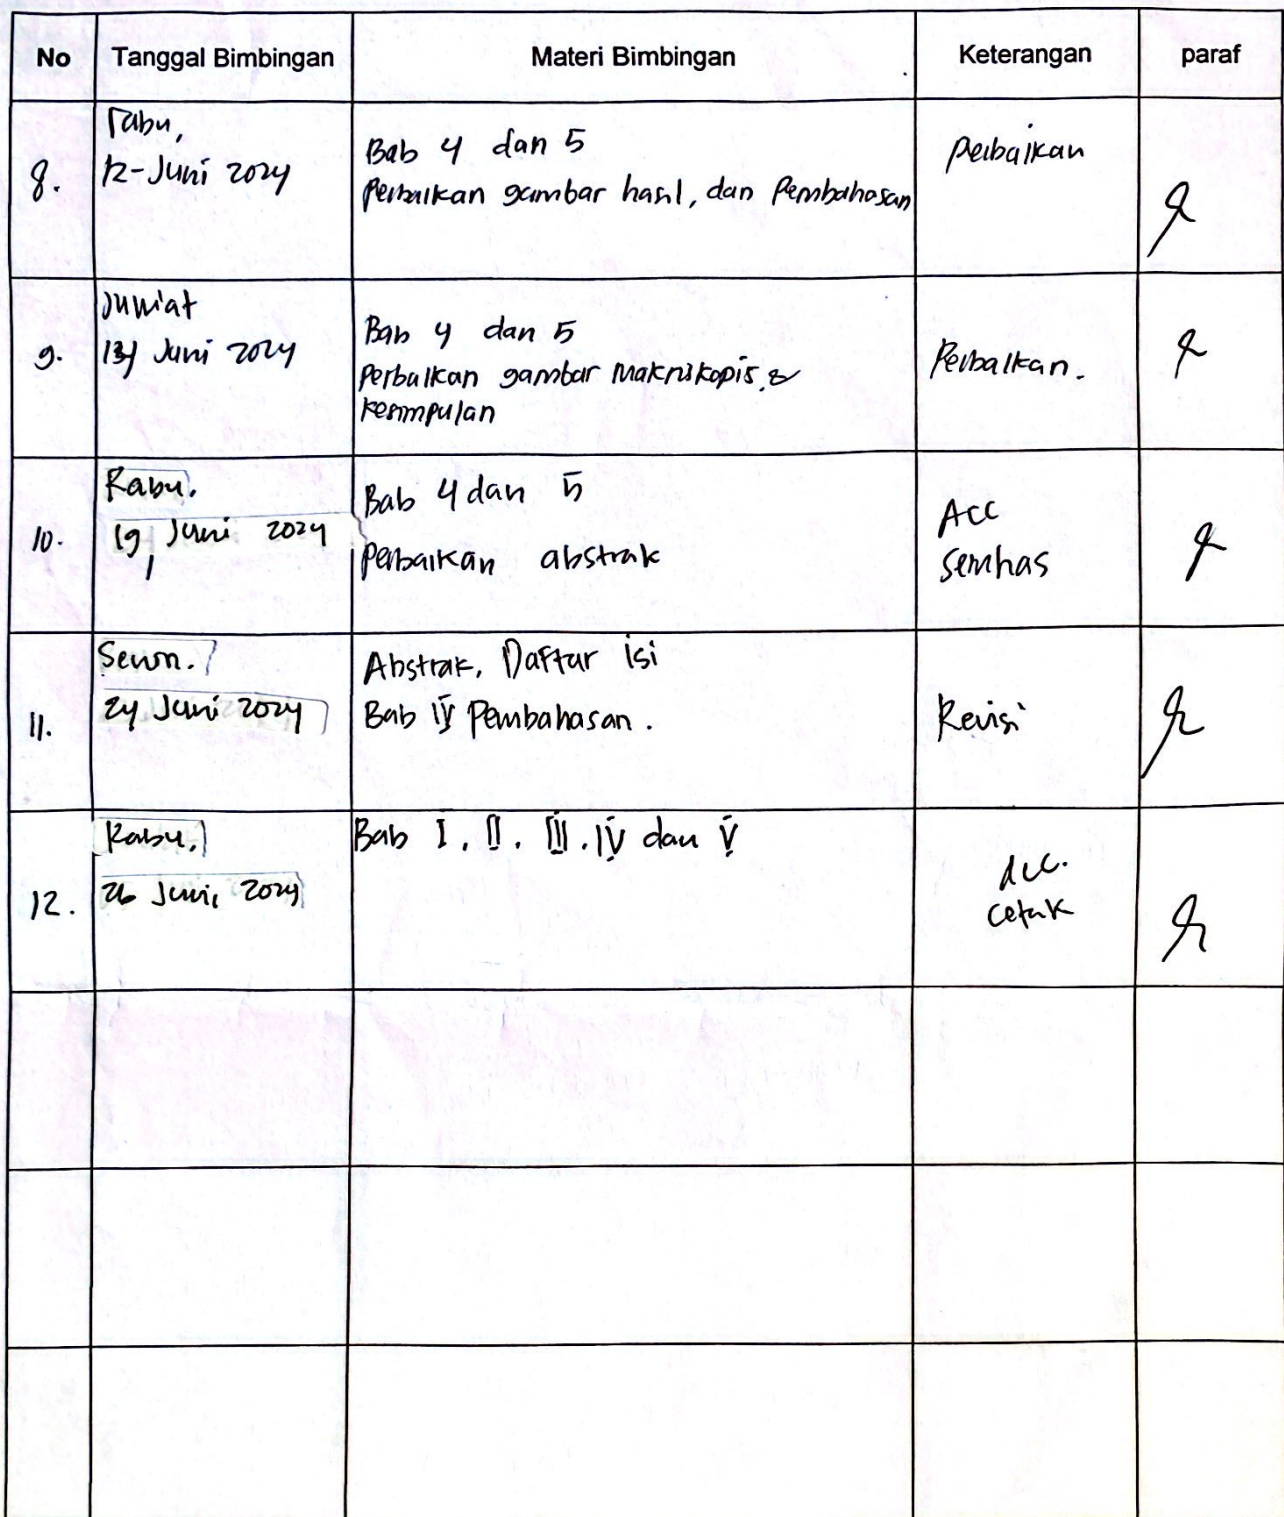 No Tanggal Bimbingan Materi Bimbingan Keterangan paraf
8.
Rabu,
12-Juni 2024
Bab 4 dan 5
Perbaikan gambar hasil, dan Pembahasan
Perbaikan
9.
Jumiat
Juni 2024
Bab 4 dan 5
Perbaikan gambar Makroskopis &
kesimpulan
Perbaikan.
10.
Rabu,
19, Juni 2024
Bab 4 dan 5
Perbaikan abstrak
Acc
semhas
11.
Senin.
24 Juni 2024
Abstrak, Daftar isi
Bab IV Pembahasan.
Revisi
12.
Rabu,
26 Juni, 2024
Bab I, II, III, IV dan V
Acc.
cetak